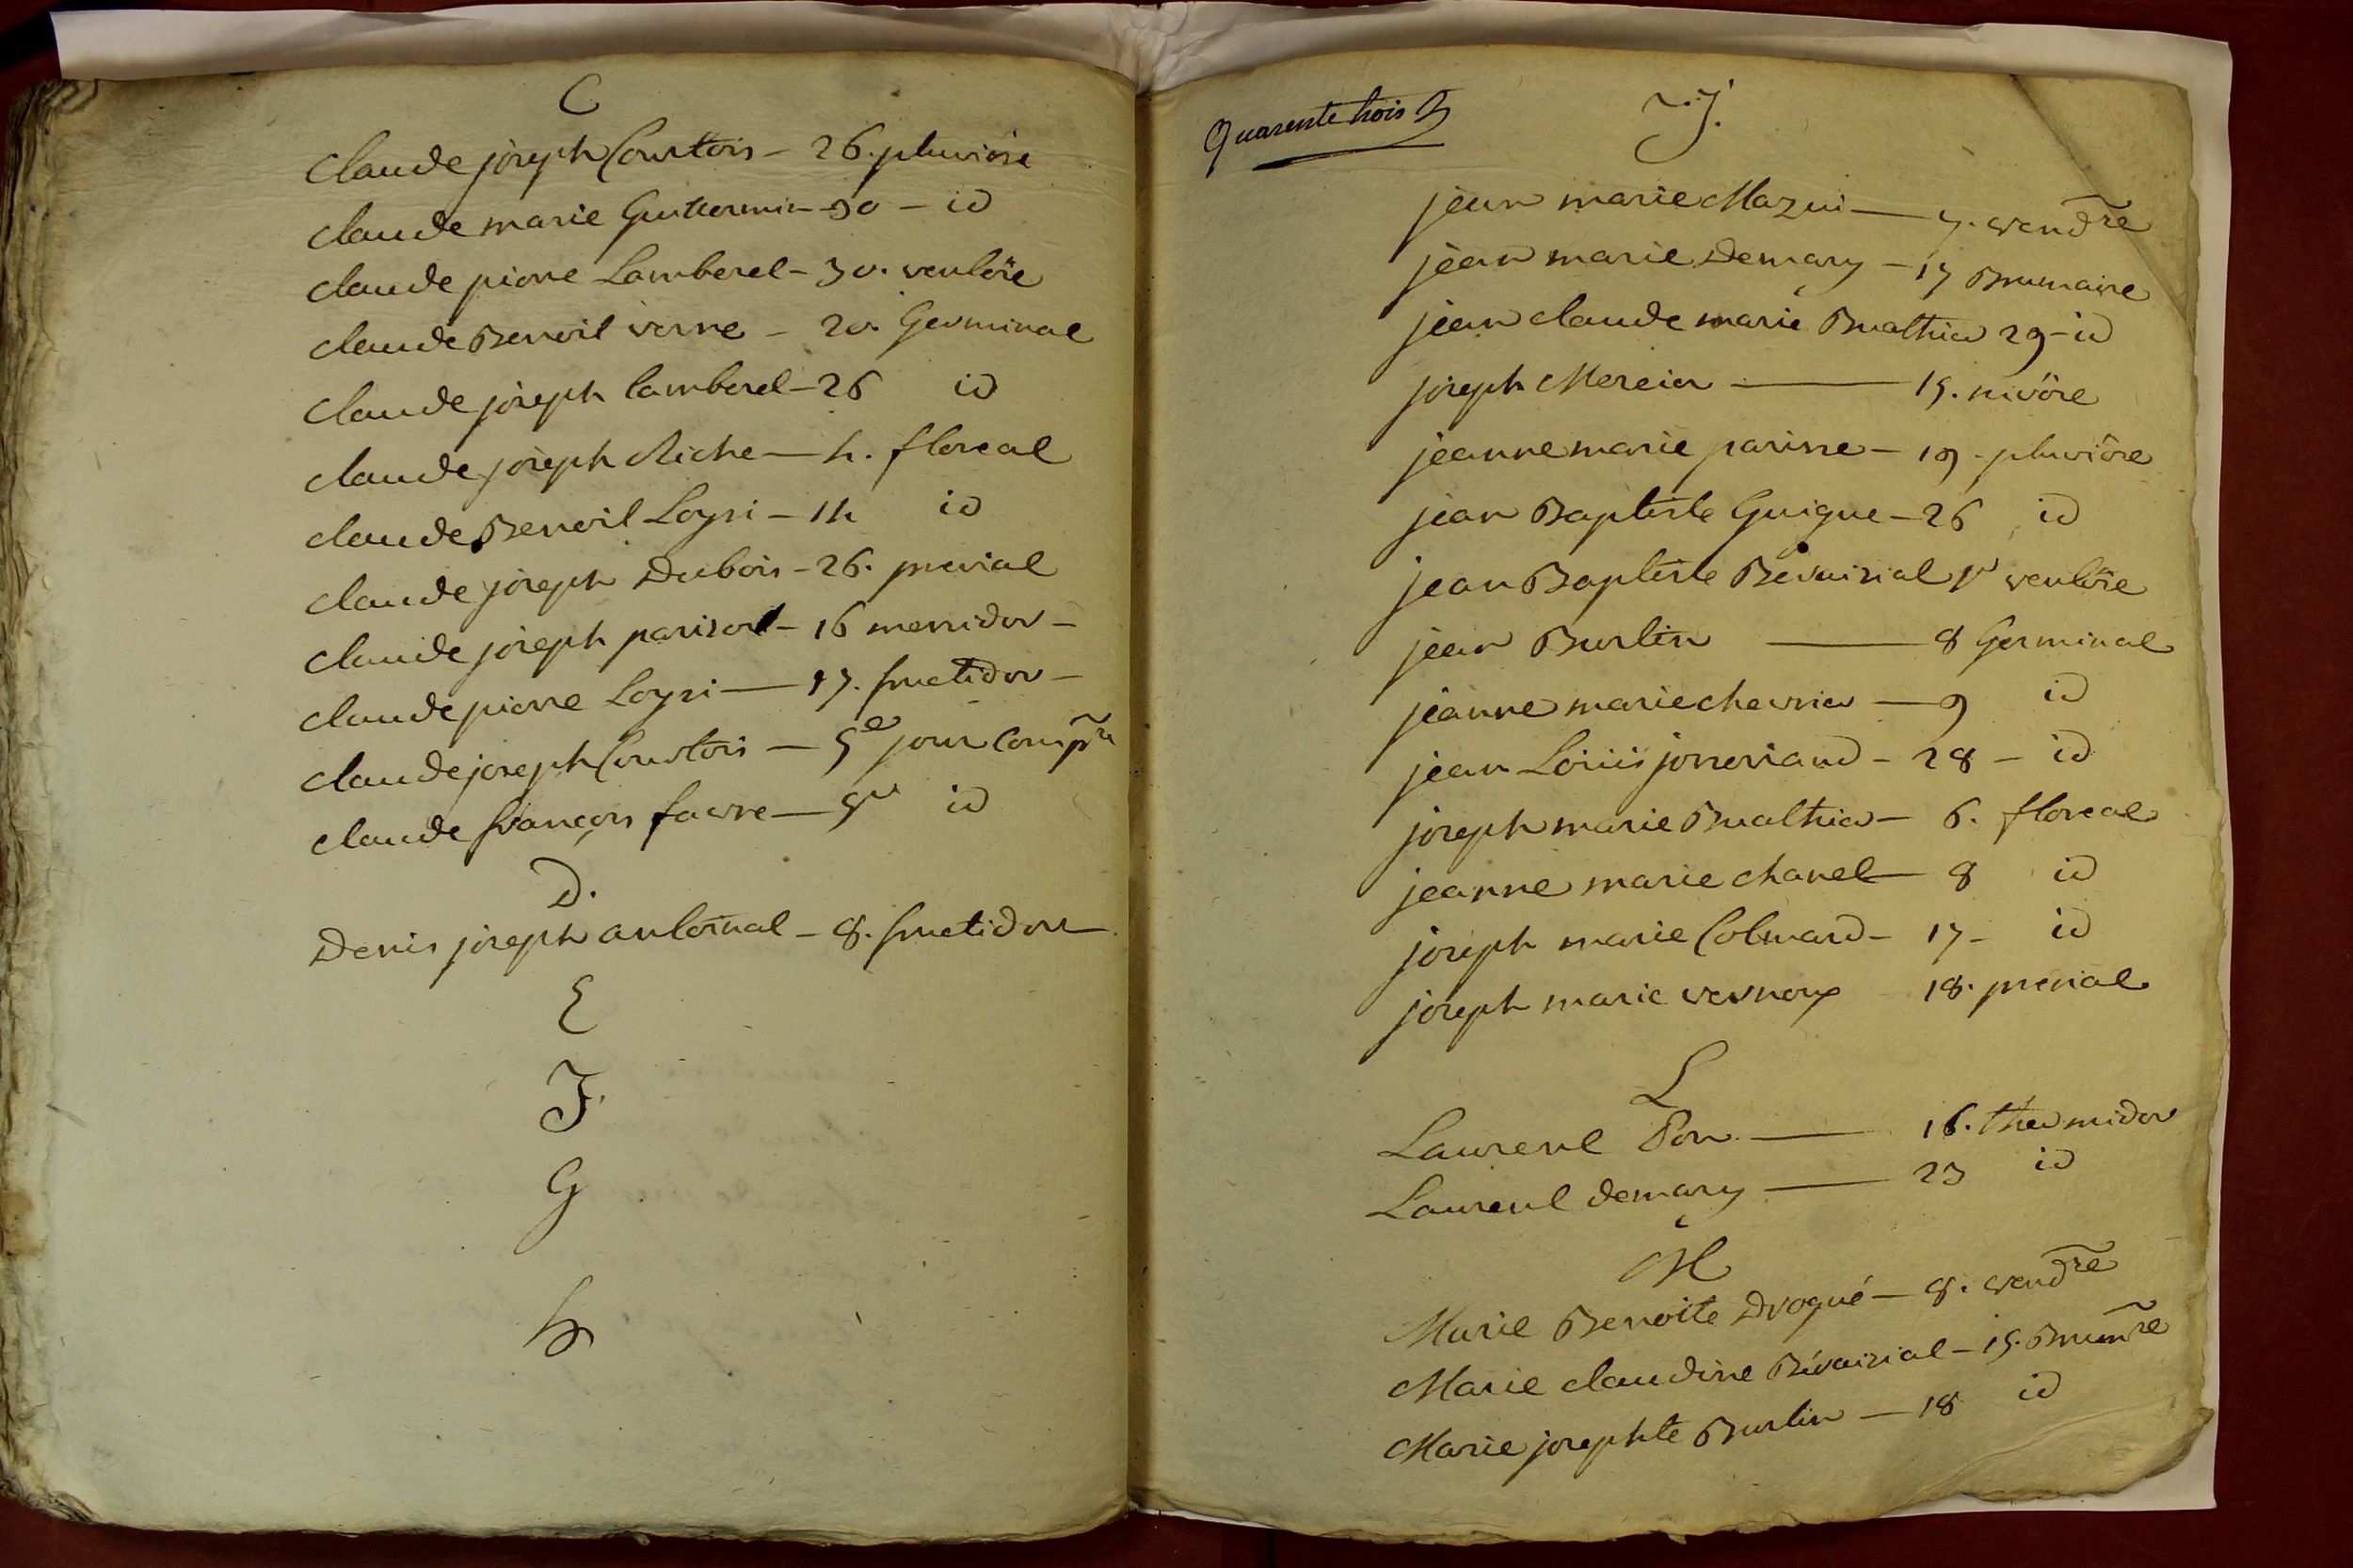 C
claude joseph Courtois – 26. pluviôse
claude marie Guillermin – 30 – id
claude pierre Lamberel – 30. ventôse
claude Benoit verne – 20. Germinal
claude joseph lamberel – 26 id
claude joseph Riche — 4. floreal
claude Benoit Loysi – 14 id
claude joseph Dubois – 26. prerial
claude joseph parisod – 16 messidor –
claude pierre Loysi — 17. fructidor –
claude joseph Courtois — 5e jour Compre
claude françois favre — 5e id
D.
Denis joseph antoinal – 8. fructidor —
E
F.
G
h
Quarente trois
J.
jean marie Mazui — 7. vendre
jean marie Demary – 17 Brumaire
jean claude marie Buathier 29 – id
joseph Mercier — 15. nivôse
jeanne marie parisse – 19. pluviôse
jean Baptiste Guigue – 26 id
jean Baptiste Bévairial 1er ventôse
jean Burtin — 8 Germinal
jeanne marie chevrier — 9 id
jean Loüis jorreriand – 28 – id
joseph marie Buathier – 6. floreal
jeanne marie chanel — 8 id
joseph marie Colmard – 17 – id
joseph marie vernoux 18. prerial
L
Laurent Pon — 16. thermidor
Laurent demary — 23 id
M
Marie Benoite Drogué – 8. vendre
Marie claudine Bévairial – 15. Brumre
Marie josephte Burtin – 18 id